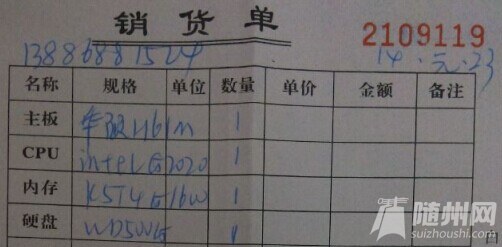 销货单
2109119
13886881524 14.元.23
名称 规格 单位 数量 单价 金额 备注
主板 华硕H61m 1
CPU intel G2020 1
内存 KST4G1600 1
硬盘 WD500G 1
随州网
suizhoushi.com